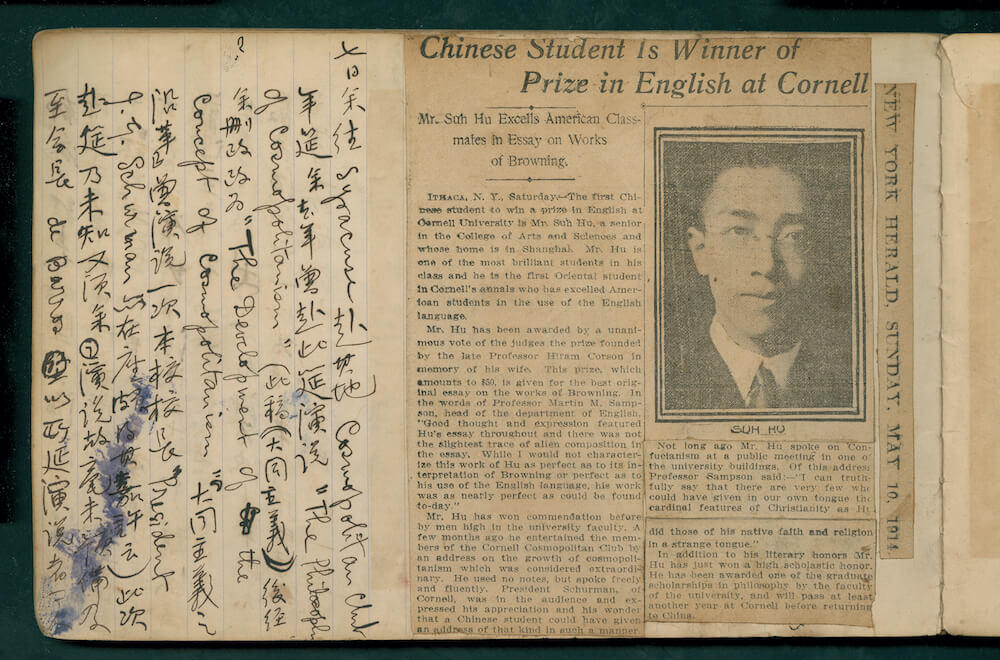 七日余往 Syracuse 赴其地 Cosmopolitan Club
年筵余去年曾赴此筵演说 "The Philosophy
of Cosmopolitanism" (此稿(大同主義)後经
?
余删改改为 "The Development of the
Concept of Cosmopolitanism" "大同主義之
沿革"曾演说一次本校校長 President
Schurman 亦在座 嘉許云)此次
赴筵乃未知又须余演说故毫未 備及
至会長 Dr 以 延演说者
Chinese Student Is Winner of
Prize in English at Cornell
Mr. Suh Hu Excells American Class-
mates in Essay on Works
of Browning.
ITHACA, N. Y., Saturday.—The first Chi-
nese student to win a prize in English at
Cornell University is Mr. Suh Hu, a senior
in the College of Arts and Sciences and
whose home is in Shanghai. Mr. Hu is
one of the most brilliant students in his
class and he is the first Oriental student
in Cornell's annals who has excelled Amer-
ican students in the use of the English
language.
Mr. Hu has been awarded by a unani-
mous vote of the judges the prize founded
by the late Professor Hiram Corson in
memory of his wife. This prize, which
amounts to $50, is given for the best orig-
inal essay on the works of Browning. In
the words of Professor Martin M. Samp-
son, head of the department of English,
"Good thought and expression featured
Hu's essay throughout and there was not
the slightest trace of alien composition in
the essay. While I would not character-
ize this work of Hu as perfect as to its in-
terpretation of Browning or perfect as to
his use of the English language, his work
was as nearly perfect as could be found
to-day."
Mr. Hu has won commendation before
by men high in the university faculty. A
few months ago he entertained the mem-
bers of the Cornell Cosmopolitan Club by
an address on the growth of cosmopoli-
tanism which was considered extraordi-
nary. He used no notes, but spoke freely
and fluently. President Schurman, of
Cornell, was in the audience and ex-
pressed his appreciation and his wonder
that a Chinese student could have given
an address of that kind in such a manner
SUH HU
Not long ago Mr. Hu spoke on Con-
fucianism at a public meeting in one of
the university buildings. Of this address
Professor Sampson said:—"I can truth-
fully say that there are very few who
could have given in our own tongue the
cardinal features of Christianity as Hu
did those of his native faith and religion
in a strange tongue."
In addition to his literary honors Mr.
Hu has just won a high scholastic honor.
He has been awarded one of the graduate
scholarships in philosophy by the faculty
of the university, and will pass at least
another year at Cornell before returning
to China.
NEW YORK HERALD, SUNDAY, MAY 10, 1914.